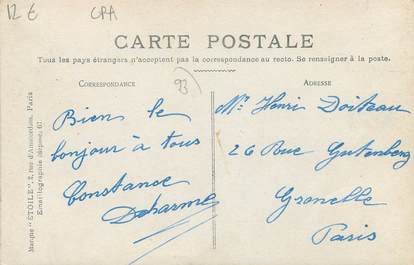 12 € CPA
CARTE POSTALE
Tous les pays étrangers n'acceptent pas la correspondance au recto. Se renseigner à la poste.
CORRESPONDANCE
93
ADRESSE
Bien le
bonjour à tous
Constance
Debarme
Mr Henri Doiteau
26 Rue Gutenberg
Grenelle
Paris
Marque "ÉTOILE", 2, rue d'Amsterdam, Paris
Émailographie déposée,